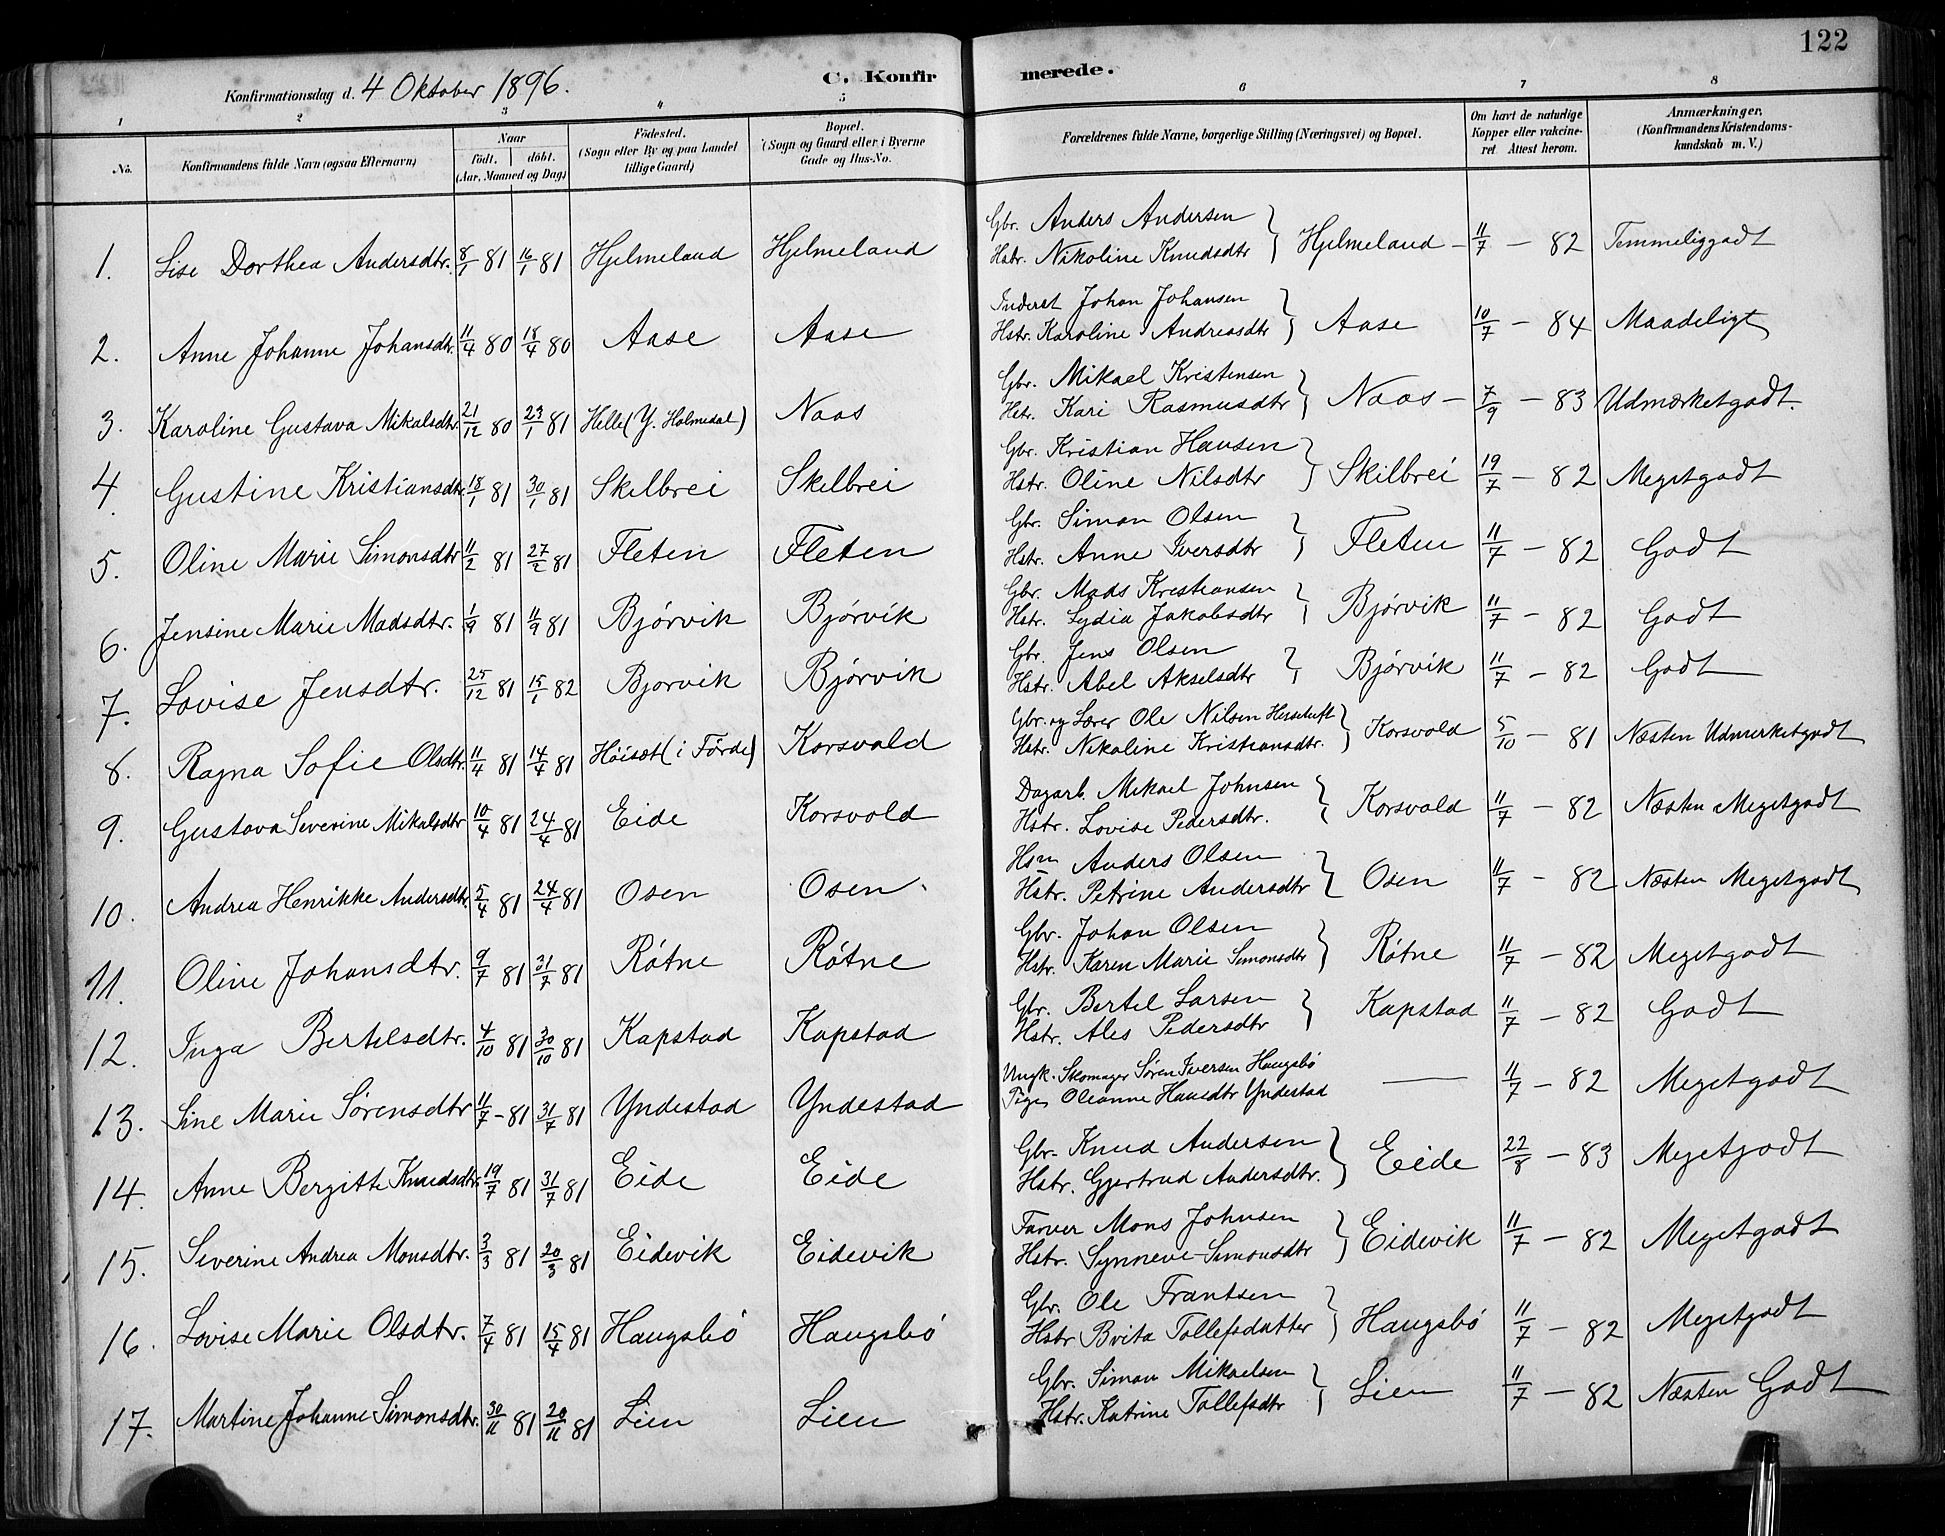 122
C. Konfirmerede.
Konfirmationsdag d. 4 Oktober 1896.
1 2 3 4 5 6 7 8
No. Konfirmandens fulde Navn (ogsaa Efternavn) Naar födt. döbt. (Aar, Maaned og Dag) Födested. (Sogn eller By og paa Landet tillige Gaard) Bopæl. (Sogn og Gaard eller i Byerne Gade og Hus-No. Forældrenes fulde Navne, borgerlige Stilling (Næringsvei) og Bopæl. Om havt de naturlige Kopper eller vakcineret Attest herom. Anmærkninger. (Konfirmandens Kristendomskundskab m. V.)
1. Lise Dorthea Andersdtr. 8/1 81 16/1 81 Hjelmeland Hjelmeland Gbr. Anders Andersen Hstr. Nikoline Knudsdtr } Hjelmeland - 11/7 - 82 Temmeliggodt
2. Anne Johanne Johansdtr. 11/4 80 18/4 80 Aase Aase Inderst Johan Johansen Hstr. Karoline Andreasdtr } Aase 10/7 - 84 Maadeligt
3. Karoline Gustava Mikalsdtr. 21/12 80 23/1 81 Helle (Y. Holmedal) Naas Gbr. Mikael Kristensen Hstr. Kari Rasmusdtr } Naas - 7/9 - 83 Udmærketgodt.
4. Gustine Kristiansdtr. 18/1 81 30/1 81 Skilbrei Skilbrei Gbr. Kristian Hansen Hstr. Oline Nilsdtr } Skilbrei 19/7 - 82 Megetgodt
5. Oline Marie Simonsdtr 11/2 81 27/2 81 Fleten Fleten Gbr. Simon Olsen Hstr. Anne Iversdtr } Fleten 11/7 - 82 Godt
6. Jensine Marie Madsdtr. 1/9 81 11/9 81 Bjørvik Bjørvik Gbr. Mads Kristiansen Hstr. Lydia Jakobsdtr } Bjørvik 11/7 - 82 Godt
7. Lovise Jensdtr. 25/12 81 15/1 82 Bjorvik Bjørvik Gbr. Jens Olsen Hstr. Abel Akselsdtr } Bjørvik 11/7 - 82 Godt
8. Ragna Sofie Olsdtr. 11/4 81 14/4 81 Høisæt (i Førde) Korsvold Gbr. og Lærer Ole Nilsen Hstr. Nikoline Kristiansdtr. } Korsvold 5/10 - 81 Næsten Udmerketgodt
9. Gustava Severine Mikalsdtr 10/4 81 24/4 81 Eide Korsvold Dagarb. Mikael Johnsen Hstr. Lovise Pedersdtr. } Korsvold 11/7 - 82 Næsten Megetgodt
10. Andrea Henrikke Andersdtr. 5/4 81 24/4 81 Osen Osen. Hsm Anders Olsen Hstr. Petrine Andersdtr } Osen 11/7 - 82 Næsten Megetgodt
11. Oline Johansdtr. 9/7 81 31/7 81 Røtne Røtne Gbr. Johan Olsen Hstr. Karen Marie Simonsdtr } Røtne 11/7 - 82 Megetgodt
12. Inga Bertelsdtr. 4/10 81 30/10 81 Kapstad Kapstad Gbr. Bertel Larsen Hstr. Ales Pedersdtr } Kapstad 11/7 - 82 Godt
13. Sine Marie Sørensdtr 11/7 - 81 31/7 81 Yndestad Yndestad Ungk. Skomager Søren Iversen Haugsbø Pige Oleanne Hansdtr Yndestad — 11/7 - 82 Megetgodt
14. Anne Bergitte Knudsdtr. 19/7 81 31/7 81 Eide Eide Gbr. Knud Andersen Hstr. Gjertrud Andersdtr. } Eide 22/8 - 83 Megetgodt
15. Severine Andrea Monsdtr. 3/3 81 20/3 81 Eidevik Eidevik Farver Mons Johnsen Hstr. Synneve Simonsdtr } Eidevik 11/7 - 82 Megetgodt
16. Lovise Marie Olsdtr. 7/4 81 15/4 81 Haugsbø Haugsbø Gbr. Ole Frantsen Hstr Brita Tollefsdatter } Haugsbø 11/7 - 82 Megetgodt
17. Martine Johanne Simonsdtr. 30/11 81 20/11 81 Lien Lien Gbr. Simon Mikaelsen Hstr. Katrine Tollefsdtr } Lien 11/7 - 82 Næsten Godt